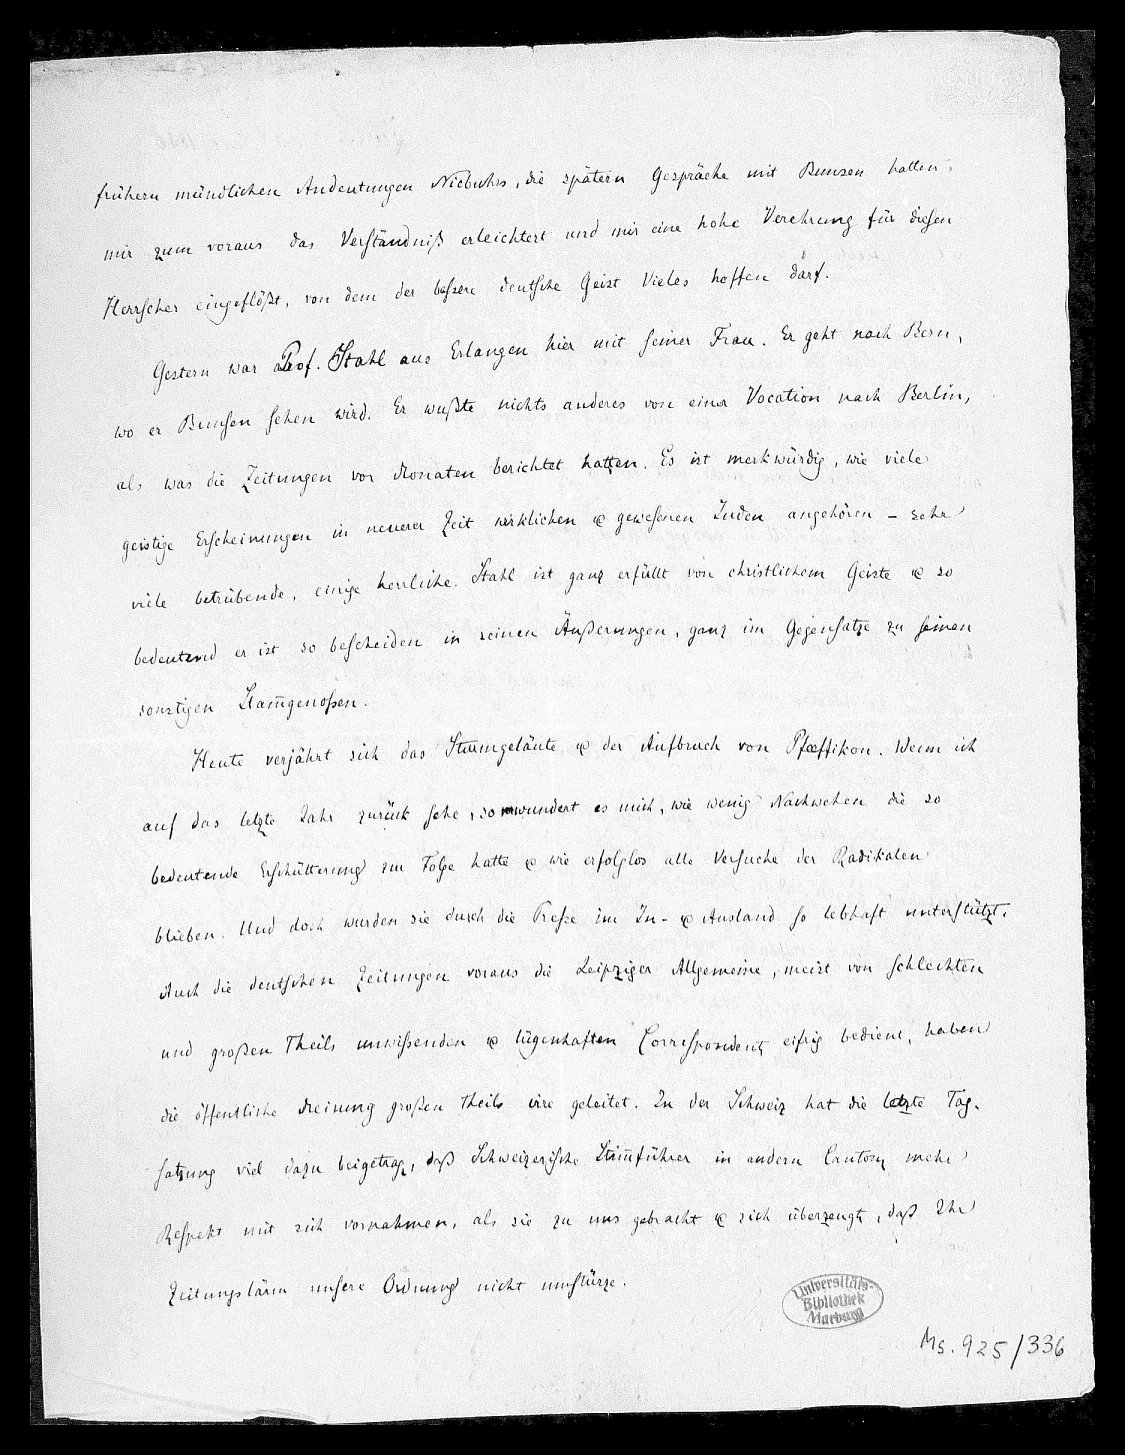 frühern mündlichen Andeutungen Niebuhrs, die spätern Gespräche mit Bunsen hatten
mir zum voraus das Verständniß erleichtert und mir eine hohe Verehrung für diesen
Herrscher eingeflößt, von dem der bessere deutsche Geist Vieles hoffen darf.
Gestern war Prof. Stahl aus Erlangen hier mit seiner Frau. Er geht nach Bern,
wo er Bunsen sehen wird. Er wußte nichts anderes von einer Vocation nach Berlin,
als was die Zeitungen vor Monaten berichtet hatten. Es ist merkwürdig, wie viele
geistige Erscheinungen in neuerer Zeit wirklichen & gewesenen Juden angehören – sehr
viele betrübende, einige herrliche. Stahl ist ganz erfüllt von christlichem Geiste & so
bedeutend er ist so bescheiden in seinen Äußerungen, ganz im Gegensatze zu seinen
sonstigen Stam̄genoßen.
Heute verjährt sich das Sturmgeläute & der Aufbruch von Pfæffikon. Wenn ich
auf das letzte Jahr zurück sehe, so wundert es mich, wie wenig Nachwehen die so
bedeutende Erschütterung zur Folge hatte & wie erfolglos alle Versuche der Radikalen
blieben. Und doch wurden sie durch die Preße im In- & Ausland so lebhaft unterstützt.
Auch die deutschen Zeitungen voraus die Leipziger Allgemeine, meist von schlechten
und großen Theils unwißenden & lügenhaften Correspondent eifrig bedient, haben
die öffentliche Meinung großen Theils irre geleitet. In der Schweiz hat die letzte Tag-
satzung viel dazu beigetrag, daß Schweizerische Stim̄führer in andern Canton mehr
Respekt mit sich vornahmen, als sie zu uns gebracht & sich überzeugt, daß Ihr
Zeitungslärm unsere Ordnung nicht umstürze.
Universitäts-
Bibliothek
Marburg
Ms. 925/336